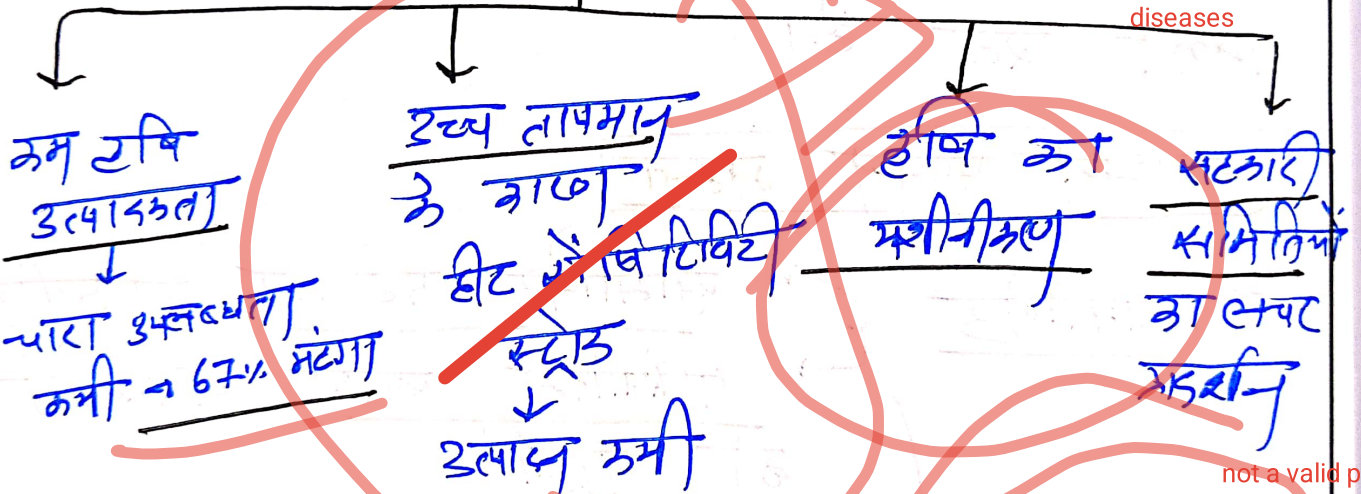 diseases
कम कृषि
उत्पादकता
चारा उपलब्धता
कमी → 67% महंगा
उच्च तापमान
के कारण
हीट सेंसिटिविटी
स्ट्रोक
उत्पादन कमी
कृषि का
मशीनीकरण
सहकारी
समितियों
का लचर
प्रदर्शन
not a valid p